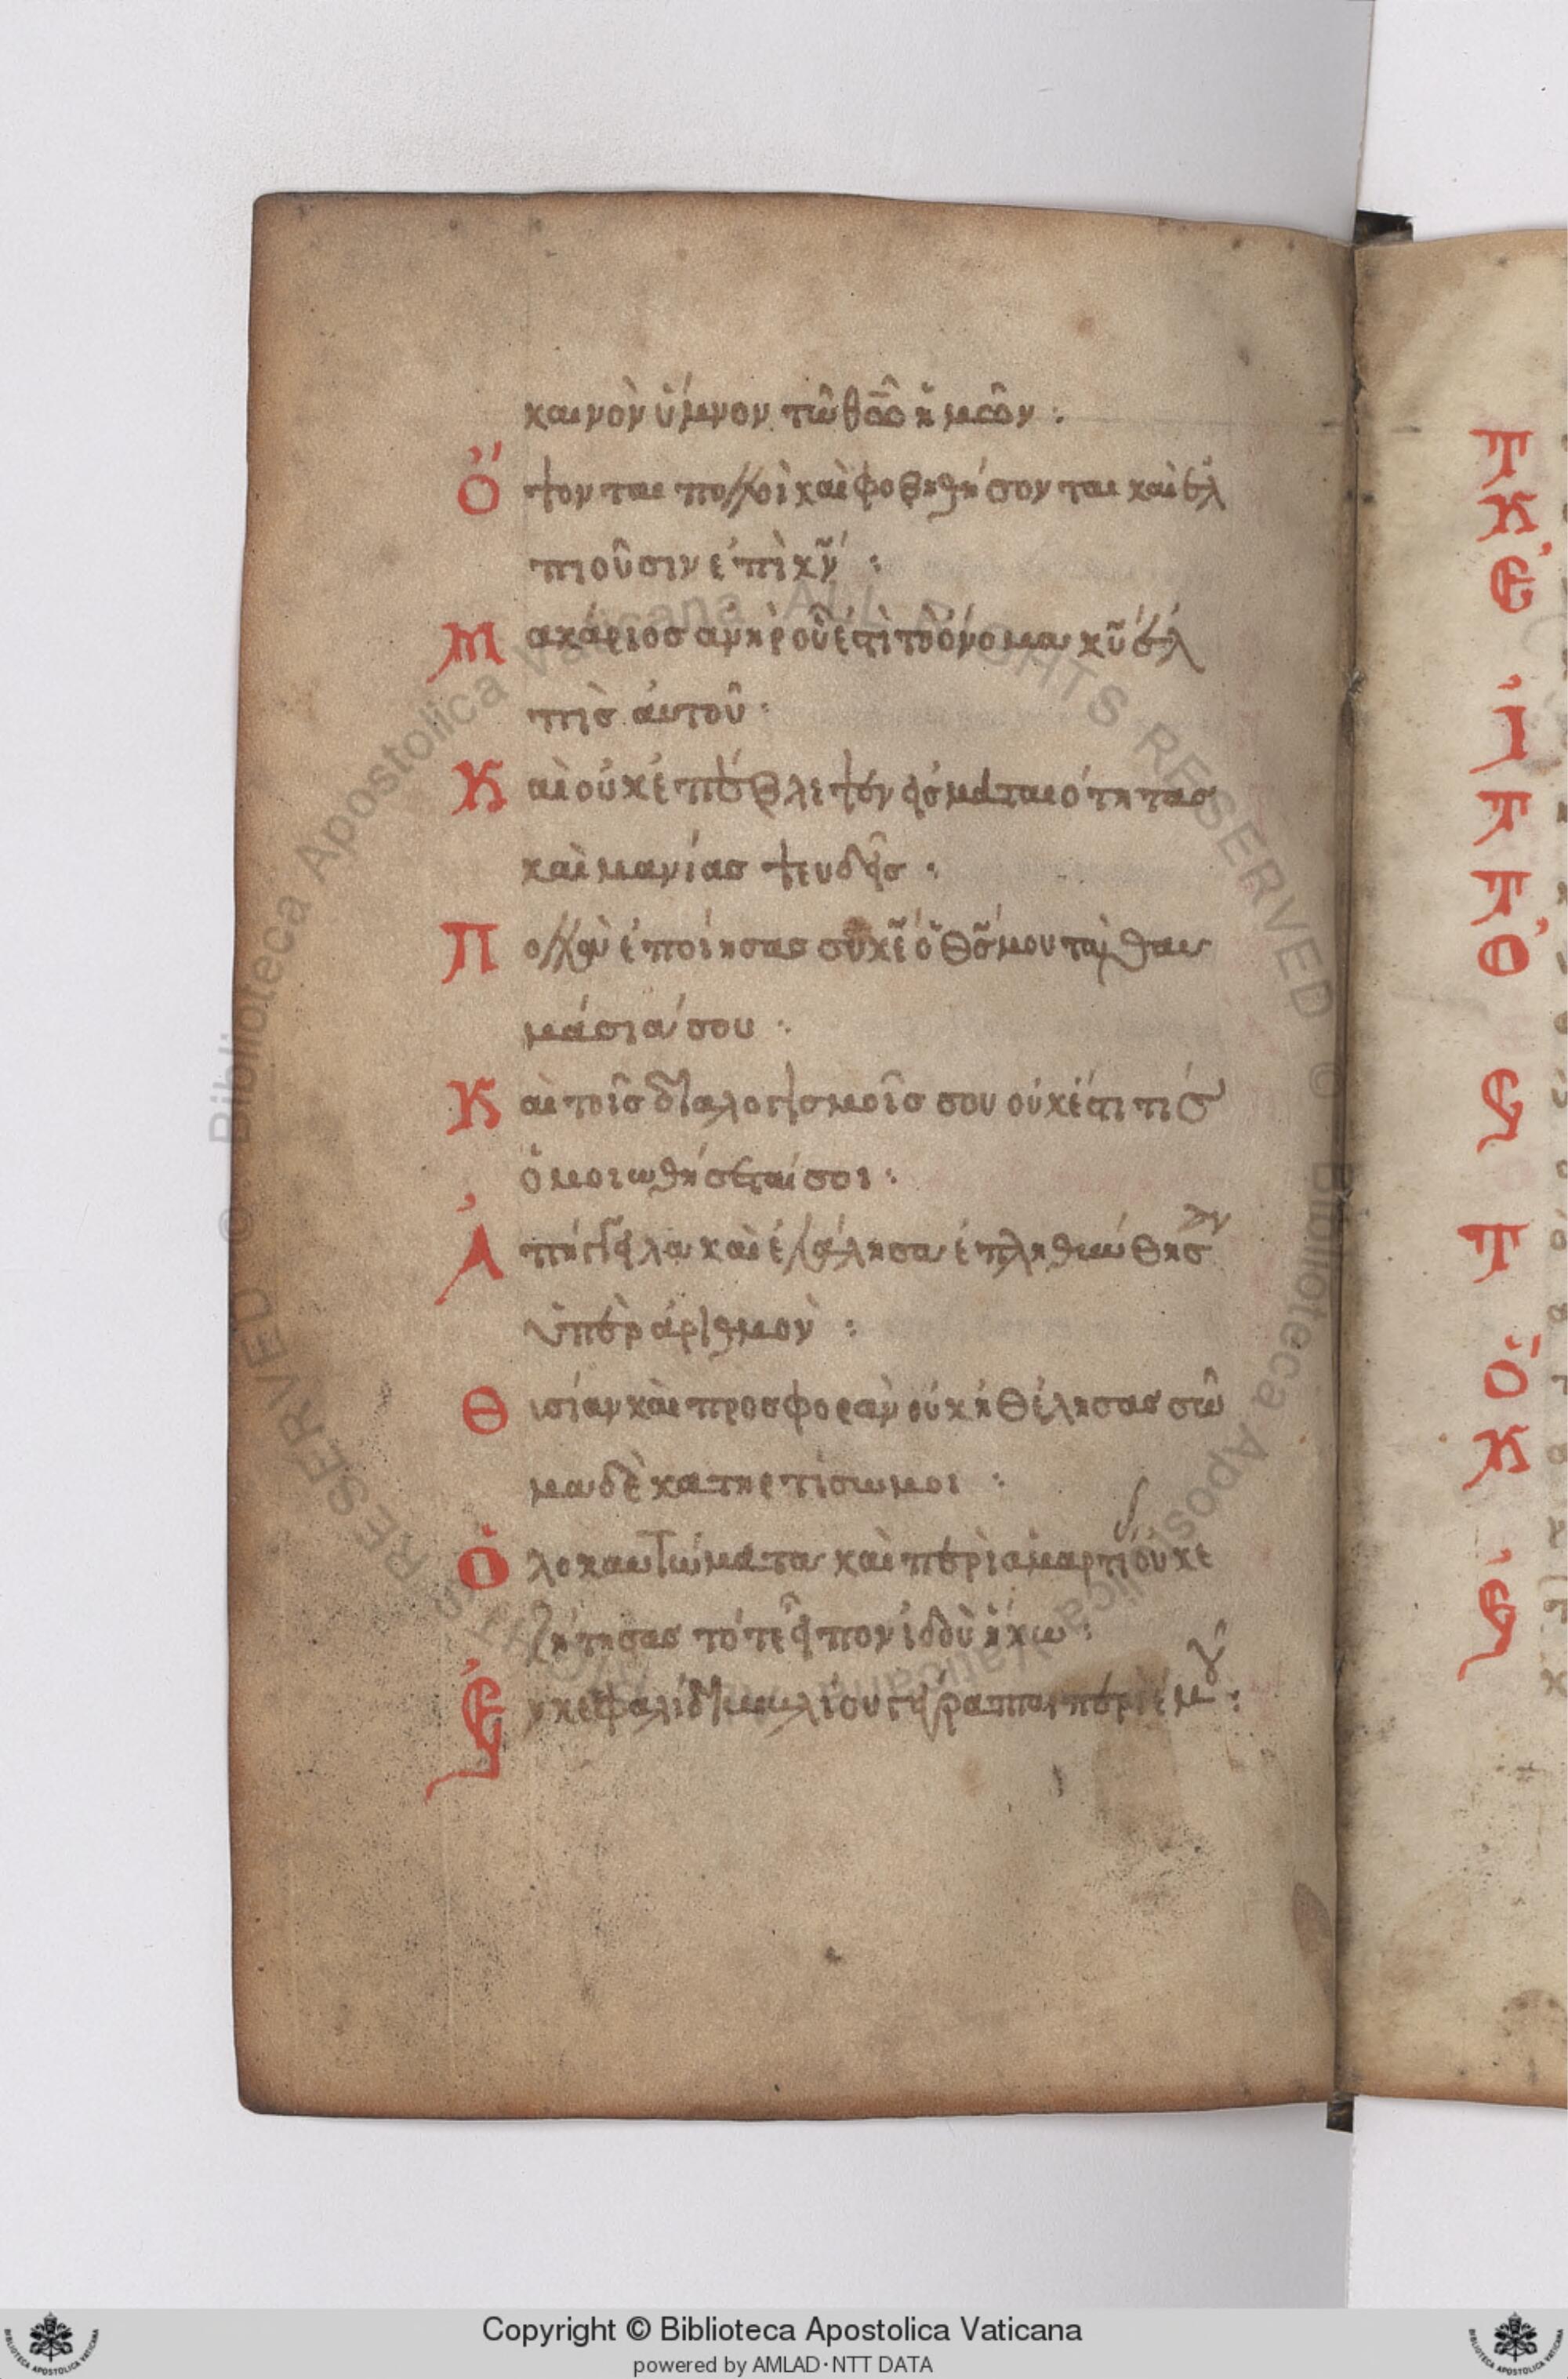 καινὸν ὕμνον τῶ θῶ ἡμῶν :
Ὄψονται πολλοὶ καὶ φοβηθήσονται καὶ ἐλ
πιοῦσιν ἐπὶ κν :
Μακάριος ἀνὴρ οὗ ἐστὶ τὸ ὄνομα κυ ἐλ
πὶς ἀυτοῦ :
Καὶ οὐκ ἐπέβλεψεν εἰς ματαιότητας
καὶ μανίας ψευδεῖς :
Πολλὰ ἐποίησας σὺ κε ὁ θς μου τὰ θαυ
μάσιά σου :
Καὶ τοῖς διαλογισμοῖς σου οὐκ ἔστι τίς
ὁμοιωθήσεταί σοι :
Ἀπήγγειλα καὶ ἐλάλησα ἐπληθύνθησαν
ὑπὲρ ἀριθμὸν :
Θισίαν καὶ προσφορὰν οὐκ ἠθέλησας σῶ
μα δὲ κατηρτίσω μοι :
Ὁλοκαυτώματα καὶ περὶ ἁμαρτί οὐκ ἐ
ζήτησας τότε εἶπον ἰδοὺ ἥκω :
Ἐν κεφαλίδι βιβλίου γέγραπται περὶ ἐμοῦ :
Τ
Κ
Ἐ
Ἰ
Τ
Τ
Ὁ
Ε
Τ
Ὅ
Κ
Ἐ
Copyright © Biblioteca Apostolica Vaticana
powered by AMLAD·NTT DATA